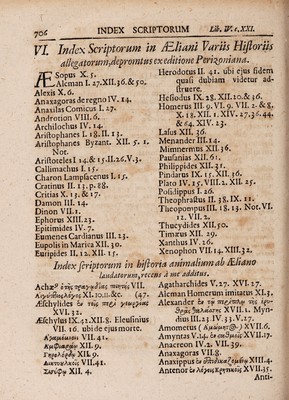 706 INDEX SCRIPTORUM Lib. IV. c. XXI.
VI. Index Scriptorum in Æliani Variis Historiis
allegatorum, depromtus ex editione Perizoniana.
ÆSopus X. 5.
Alcman I. 27. XII. 36. & 50.
Alexis X. 6.
Anaxagoras de regno IV. 14.
Anaxilas Comicus I. 27.
Androtion VIII. 6.
Archilochus IV. 14.
Aristophanes I. 18. II. 13.
Aristophanes Byzant. XII. 5. 1.
Not.
Aristoteles I 14. & 15. II. 26. V. 3.
Callimachus I. 15.
Charon Lampsacenus I. 15.
Cratinus II. 13. p. 88.
Critias X. 13. & 17.
Damon III. 14.
Dinon VII. 1.
Ephorus XIII. 23.
Epitimides IV. 7.
Eumenes Cardianus III. 23.
Eupolis in Marica XII. 30.
Euripides II. 12. XII. 15.
Herodotus II. 41. ubi ejus fidem
quasi dubiam videtur ad-
struere.
Hesiodus IX. 28. XII. 20. & 36.
Homerus III. 9. VI. 9. VII. 2. & 8.
X. 18. XII. 1. XIV. 27. 36. 44.
& 64. XIV. 23.
Lasus XII. 36.
Menander III. 14.
Mimnermus XII. 36.
Pausanias XII. 61.
Philippides XII. 31.
Pindarus IX. 15. XII. 36.
Plato IV. 15. VIII. 2. XII. 25.
Posidippus I. 26.
Theophrastus II. 38. IX. 11.
Theopompus III. 18. 13. Not. VI.
11. VII. 2.
Thucydides XII. 50.
Timæus XII. 29.
Xanthus IV. 16.
Xenophon VII. 14. XIII. 32.
Index scriptorum in historia animalium ab Æliano
laudatorum, recens à me additus.
Achæus VII.
(47.
Æschylides
XVI. 32.
Æschylus IX. 42. XII. 8. Eleusinius
VII. 16. ubi de ejus morte.
VI. 51.
XII. 9.
XII. 9.
VII. 47.
XII. 4.
Agatharchides V. 27. XVI. 27.
Alcman Homerum imitatus XI. 3.
Alexander
XVII. 1. Myn-
dius III. 23. IV. 33. V. 27.
Amometus XVII. 6.
Amyntas V. 14. XVII. 17.
Anacreon IV. 2. VII. 39.
Anaxagoras VII. 8.
Anaxippus XIII. 4.
Antenor XVII. 35.
Anti-